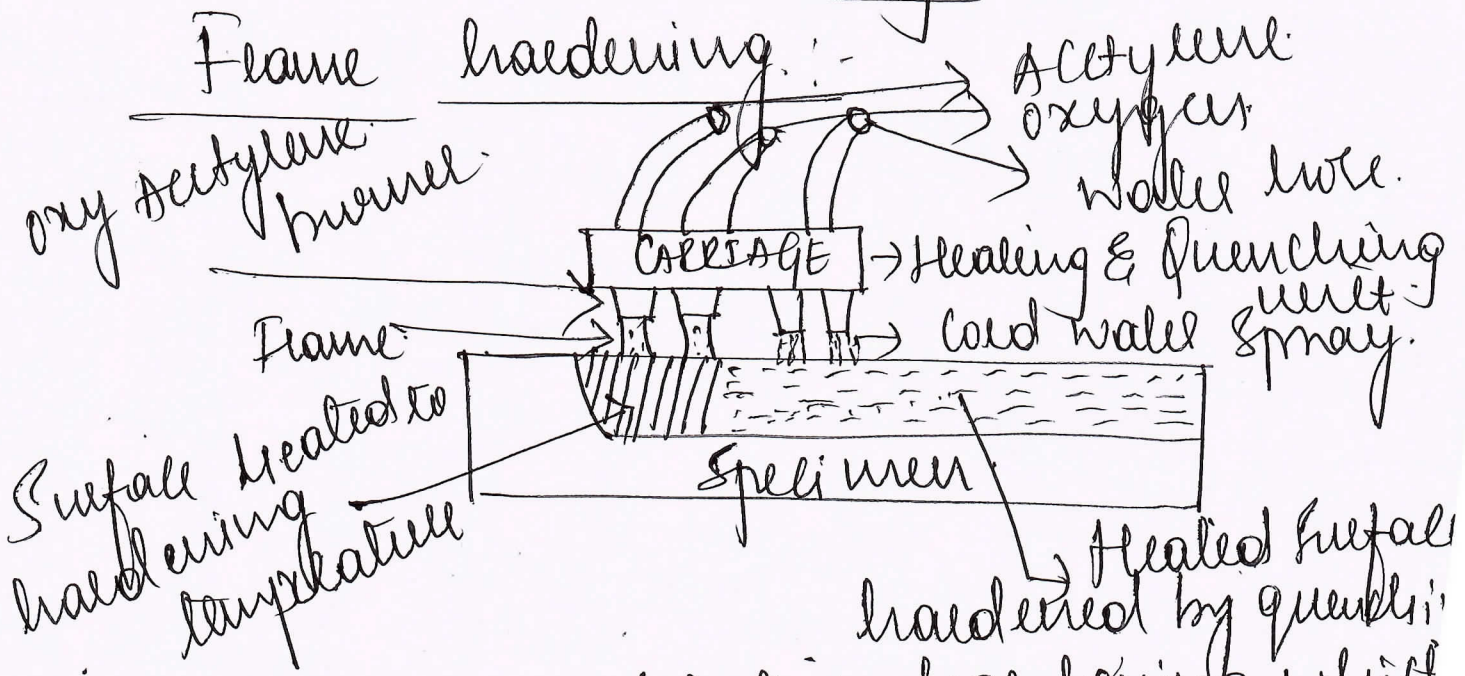 Flame hardening :-
Acetylene
Oxygen
Water hose.
Oxy Acetylene
burner
CARRIAGE
Heating & Quenching
unit
Flame
Cold water Spray.
Surface heated to
hardening
temperature
Specimen
Heated Surface
hardened by